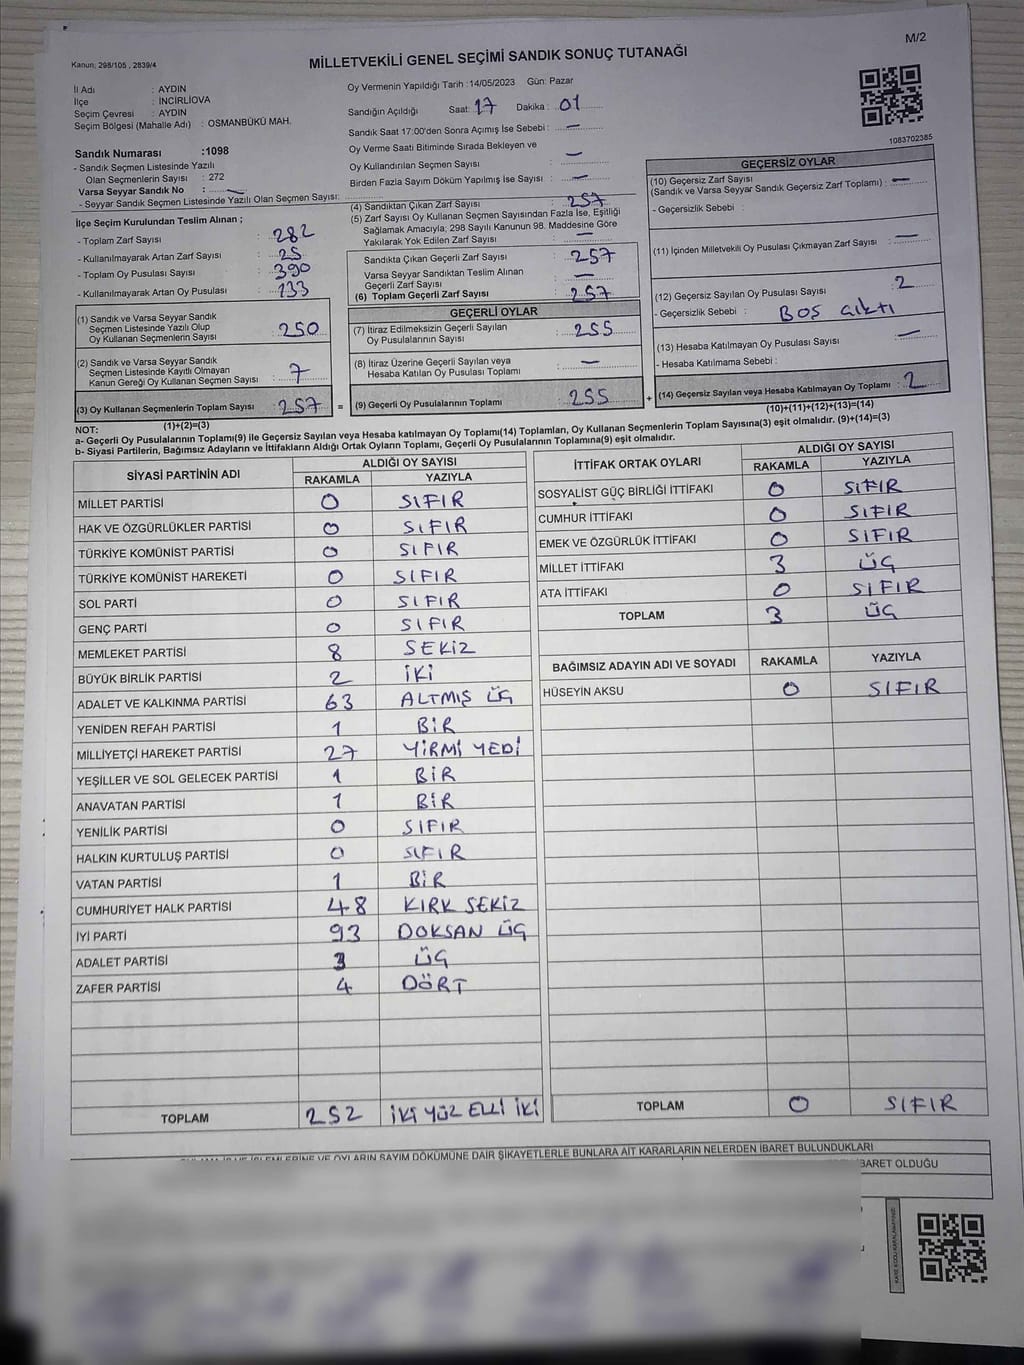 M/2
Kanun: 298/105 , 2839/4
MİLLETVEKİLİ GENEL SEÇİMİ SANDIK SONUÇ TUTANAĞI
İl Adı : AYDIN
İlçe : İNCİRLİOVA
Seçim Çevresi : AYDIN
Seçim Bölgesi (Mahalle Adı) : OSMANBÜKÜ MAH.
Sandık Numarası :1098
- Sandık Seçmen Listesinde Yazılı
Olan Seçmenlerin Sayısı : 272
Varsa Seyyar Sandık No : —
- Seyyar Sandık Seçmen Listesinde Yazılı Olan Seçmen Sayısı:
Oy Vermenin Yapıldığı Tarih :14/05/2023 Gün: Pazar
Sandığın Açıldığı Saat: 17 Dakika : 01
Sandık Saat 17:00'den Sonra Açımış İse Sebebi : —
Oy Verme Saati Bitiminde Sırada Bekleyen ve
Oy Kullandırılan Seçmen Sayısı : —
Birden Fazla Sayım Döküm Yapılmış İse Sayısı : —
1083702385
İlçe Seçim Kurulundan Teslim Alınan ;
- Toplam Zarf Sayısı : 282
- Kullanılmayarak Artan Zarf Sayısı : 25
- Toplam Oy Pusulası Sayısı : 390
- Kullanılmayarak Artan Oy Pusulası : 133
(1) Sandık ve Varsa Seyyar Sandık
Seçmen Listesinde Yazılı Olup
Oy Kullanan Seçmenlerin Sayısı : 250
(2) Sandık ve Varsa Seyyar Sandık
Seçmen Listesinde Kayıtlı Olmayan
Kanun Gereği Oy Kullanan Seçmen Sayısı : 7
(3) Oy Kullanan Seçmenlerin Toplam Sayısı : 257
(1)+(2)=(3)
(4) Sandıktan Çıkan Zarf Sayısı : 257
(5) Zarf Sayısı Oy Kullanan Seçmen Sayısından Fazla İse, Eşitliği
Sağlamak Amacıyla; 298 Sayılı Kanunun 98. Maddesine Göre
Yakılarak Yok Edilen Zarf Sayısı : —
Sandıkta Çıkan Geçerli Zarf Sayısı : 257
Varsa Seyyar Sandıktan Teslim Alınan
Geçerli Zarf Sayısı : —
(6) Toplam Geçerli Zarf Sayısı : 257
GEÇERLİ OYLAR
(7) İtiraz Edilmeksizin Geçerli Sayılan
Oy Pusulalarının Sayısı : 255
(8) İtiraz Üzerine Geçerli Sayılan veya
Hesaba Katılan Oy Pusulası Toplamı : —
= (9) Geçerli Oy Pusulalarının Toplamı : 255
GEÇERSİZ OYLAR
(10) Geçersiz Zarf Sayısı
(Sandık ve Varsa Seyyar Sandık Geçersiz Zarf Toplamı) : —
- Geçersizlik Sebebi :
(11) İçinden Milletvekili Oy Pusulası Çıkmayan Zarf Sayısı : —
(12) Geçersiz Sayılan Oy Pusulası Sayısı : 2
- Geçersizlik Sebebi : BOŞ çıktı
(13) Hesaba Katılmayan Oy Pusulası Sayısı : —
- Hesaba Katılmama Sebebi :
+ (14) Geçersiz Sayılan veya Hesaba Katılmayan Oy Toplamı : 2
(10)+(11)+(12)+(13)=(14)
NOT:
a- Geçerli Oy Pusulalarının Toplamı(9) ile Geçersiz Sayılan veya Hesaba katılmayan Oy Toplamı(14) Toplamları, Oy Kullanan Seçmenlerin Toplam Sayısına(3) eşit olmalıdır. (9)+(14)=(3)
b- Siyasi Partilerin, Bağımsız Adayların ve İttifakların Aldığı Ortak Oyların Toplamı, Geçerli Oy Pusulalarının Toplamına(9) eşit olmalıdır.
SİYASİ PARTİNİN ADI ALDIĞI OY SAYISI
RAKAMLA YAZIYLA
MİLLET PARTİSİ 0 SIFIR
HAK VE ÖZGÜRLÜKLER PARTİSİ 0 SIFIR
TÜRKİYE KOMÜNİST PARTİSİ 0 SIFIR
TÜRKİYE KOMÜNİST HAREKETİ 0 SIFIR
SOL PARTİ 0 SIFIR
GENÇ PARTİ 0 SIFIR
MEMLEKET PARTİSİ 8 SEKİZ
BÜYÜK BİRLİK PARTİSİ 2 İKİ
ADALET VE KALKINMA PARTİSİ 63 ALTMIŞ ÜÇ
YENİDEN REFAH PARTİSİ 1 BİR
MİLLİYETÇİ HAREKET PARTİSİ 27 YİRMİ YEDİ
YEŞİLLER VE SOL GELECEK PARTİSİ 1 BİR
ANAVATAN PARTİSİ 1 BİR
YENİLİK PARTİSİ 0 SIFIR
HALKIN KURTULUŞ PARTİSİ 0 SIFIR
VATAN PARTİSİ 1 BİR
CUMHURİYET HALK PARTİSİ 48 KIRK SEKİZ
İYİ PARTİ 93 DOKSAN ÜÇ
ADALET PARTİSİ 3 ÜÇ
ZAFER PARTİSİ 4 DÖRT
TOPLAM 252 İKİ YÜZ ELLİ İKİ
İTTİFAK ORTAK OYLARI ALDIĞI OY SAYISI
RAKAMLA YAZIYLA
SOSYALİST GÜÇ BİRLİĞİ İTTİFAKI 0 SIFIR
CUMHUR İTTİFAKI 0 SIFIR
EMEK VE ÖZGÜRLÜK İTTİFAKI 0 SIFIR
MİLLET İTTİFAKI 3 ÜÇ
ATA İTTİFAKI 0 SIFIR
TOPLAM 3 ÜÇ
BAĞIMSIZ ADAYIN ADI VE SOYADI RAKAMLA YAZIYLA
HÜSEYİN AKSU 0 SIFIR
TOPLAM 0 SIFIR
OYLARIN SAYIM DÖKÜMÜNE DAİR ŞİKAYETLERLE BUNLARA AİT KARARLARIN NELERDEN İBARET BULUNDUKLARI
İBARET OLDUĞU